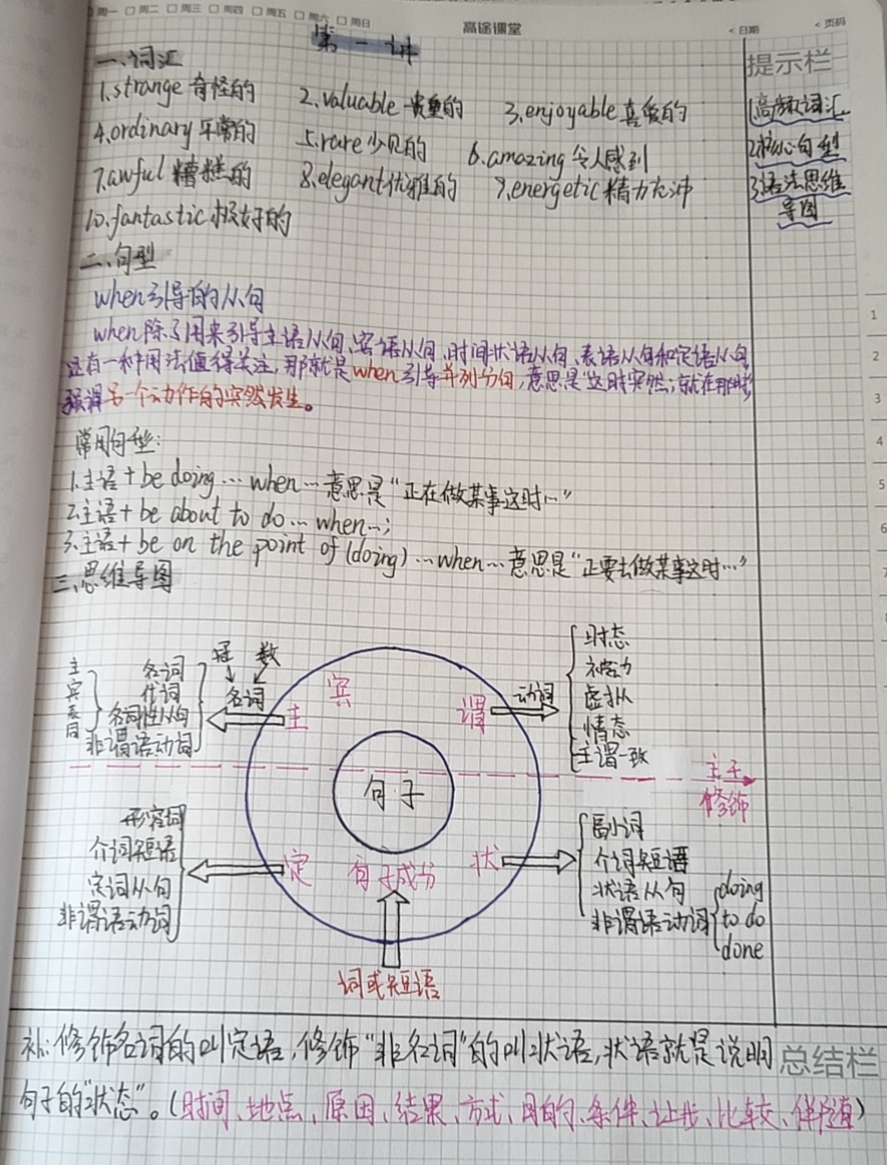 周一 □周二 □周三 □周四 □周五 □周六 □周日
高途课堂
<日期
<页码
第一讲
提示栏
1.高频词汇
2.核心句型
3.语法思维
导图
一、词汇
1.strange 奇怪的 2.valuable 贵重的 3.enjoyable 喜爱的
4.ordinary 平常的 5.rare 少见的 6.amazing 令人感到
7.awful 糟糕的 8.elegant 优雅的 9.energetic 精力充沛
10.fantastic 极好的
二、句型
when引导的从句
when除了用来引导主语从句、宾语从句、时间状语从句、表语从句和定语从句,
还有一种用法值得关注,那就是when引导并列分句,意思是"这时突然;就在那时,
强调另一个动作的突然发生。
常用句型:
1.主语+be doing…when…意思是"正在做某事这时…"
2.主语+be about to do…when…;
3.主语+be on the point of (doing)…when…意思是"正要去做某事这时…"
三、思维导图
主
宾
表
同
名词
代词
名词性从句
非谓语动词
冠 数
名词
主
宾
谓
动词
时态
被动
虚拟
情态
主谓一致
主干
修饰
句子
形容词
介词短语
定词从句
非谓语动词
定
句子成分
状
副词
介词短语
状语从句
非谓语动词
doing
to do
done
词或短语
补:修饰名词的叫定语,修饰"非名词"的叫状语,状语就是说明
句子的"状态"。(时间、地点、原因、结果、方式、目的、条件、让步、比较、伴随)
总结栏
1
2
3
4
5
6
7